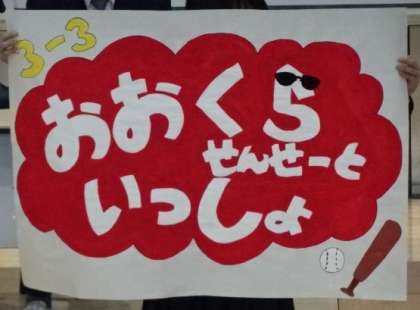 3-3
おおくら
せんせーと
いっしょ